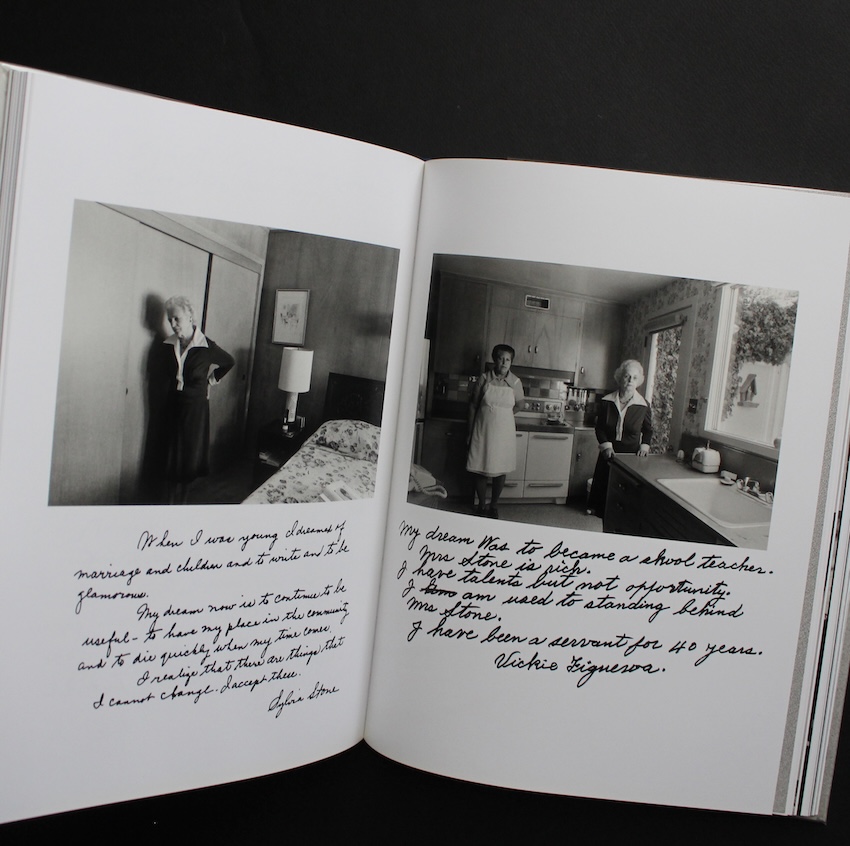 When I was young I dreamed of
marriage and children and to write and to be
glamorous.
My dream now is to continue to be
useful - to have my place in the community
and to die quickly when my time comes.
I realize that there are things that
I cannot change. I accept these.
Sylvia Stone
My dream was to became a skool teacher.
Mrs Stone is rich.
I have talents but not opportunity.
I am used to standing behind
Mrs Stone.
I have been a servant for 40 years.
Vickie Figueroa.